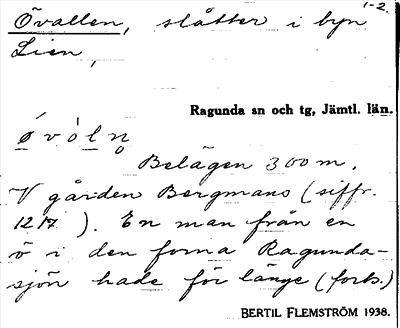 1-2.
Övallen, slåtter i byn
Lien,
Ragunda sn och tg, Jämtl. län.
ǿ v ò l n̥
Belägen 300 m.
V gården Bergmans (siffr.
12/7 ). En man från en
ö i den forna Ragunda-
sjön hade för länge (forts.)
BERTIL FLEMSTRÖM 1938.